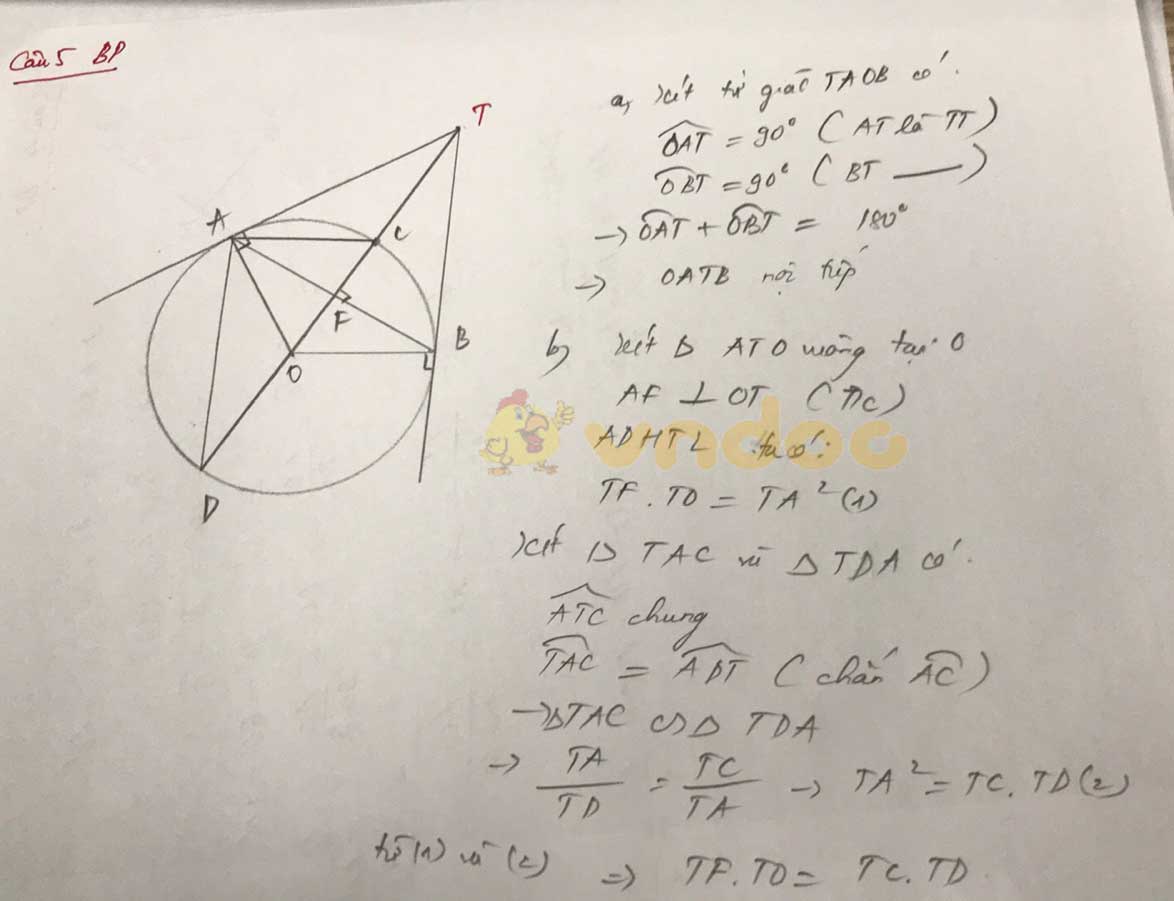 Câu 5 BP
T
A
C
F
B
O
D
a, Xét tứ giác TAOB có.
OAT = 90° ( AT là TT )
OBT = 90° ( BT — )
→ OAT + OBT = 180°
→ OATB nội tiếp
b, Xét Δ ATO vuông tại O
AF ⊥ OT ( T/c )
ADHTL ta có:
vndoc
TF . TO = TA² (1)
Xét Δ TAC và Δ TDA có.
ATC chung
TAC = ADT ( chắn AC )
→ Δ TAC ∽ Δ TDA
→ TA/TD = TC/TA → TA² = TC . TD (2)
từ (1) và (2) ⇒ TF . TO = TC . TD